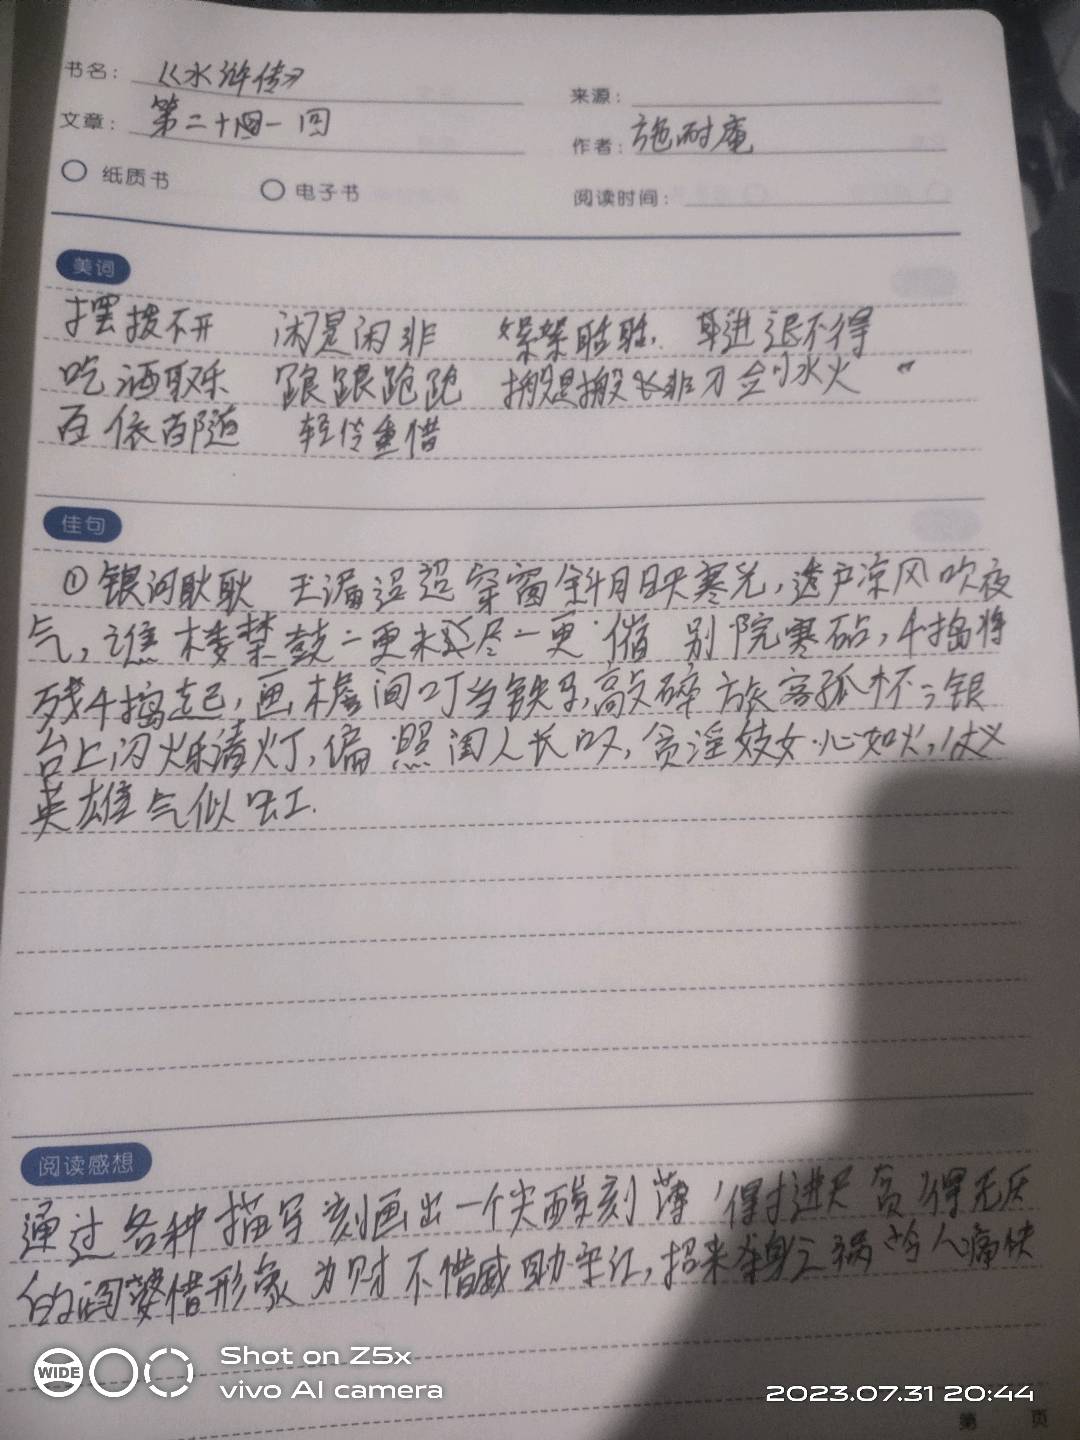 书名： 《水浒传》
来源：
文章： 第二十一回
作者： 施耐庵
纸质书 电子书 阅读时间：
美词
摆拨不开 闲是闲非 絮絮聒聒 进退不得
吃酒取乐 踉踉跄跄 搬是搬非 刀剑水火
百依百随 轻
佳句
①银河耿耿 玉漏迢迢 穿窗斜月映寒光，透户凉风吹夜
气，谯楼禁鼓一更未尽一更催 别院寒砧，千捣将
残千捣起，画檐间叮当铁马，敲碎旅客孤怀；银
台上闪烁清灯，偏照闺人长叹，贪淫妓女心如火，仗义
英雄气似虹.
阅读感想
通过各种描写刻画出一个尖酸刻薄 得寸进尺 贪得无厌
的阎婆惜形象 为财不惜威胁宋江，招来杀身之祸 令人痛快
WIDE
Shot on Z5x
vivo AI camera
2023.07.31 20:44
第 页